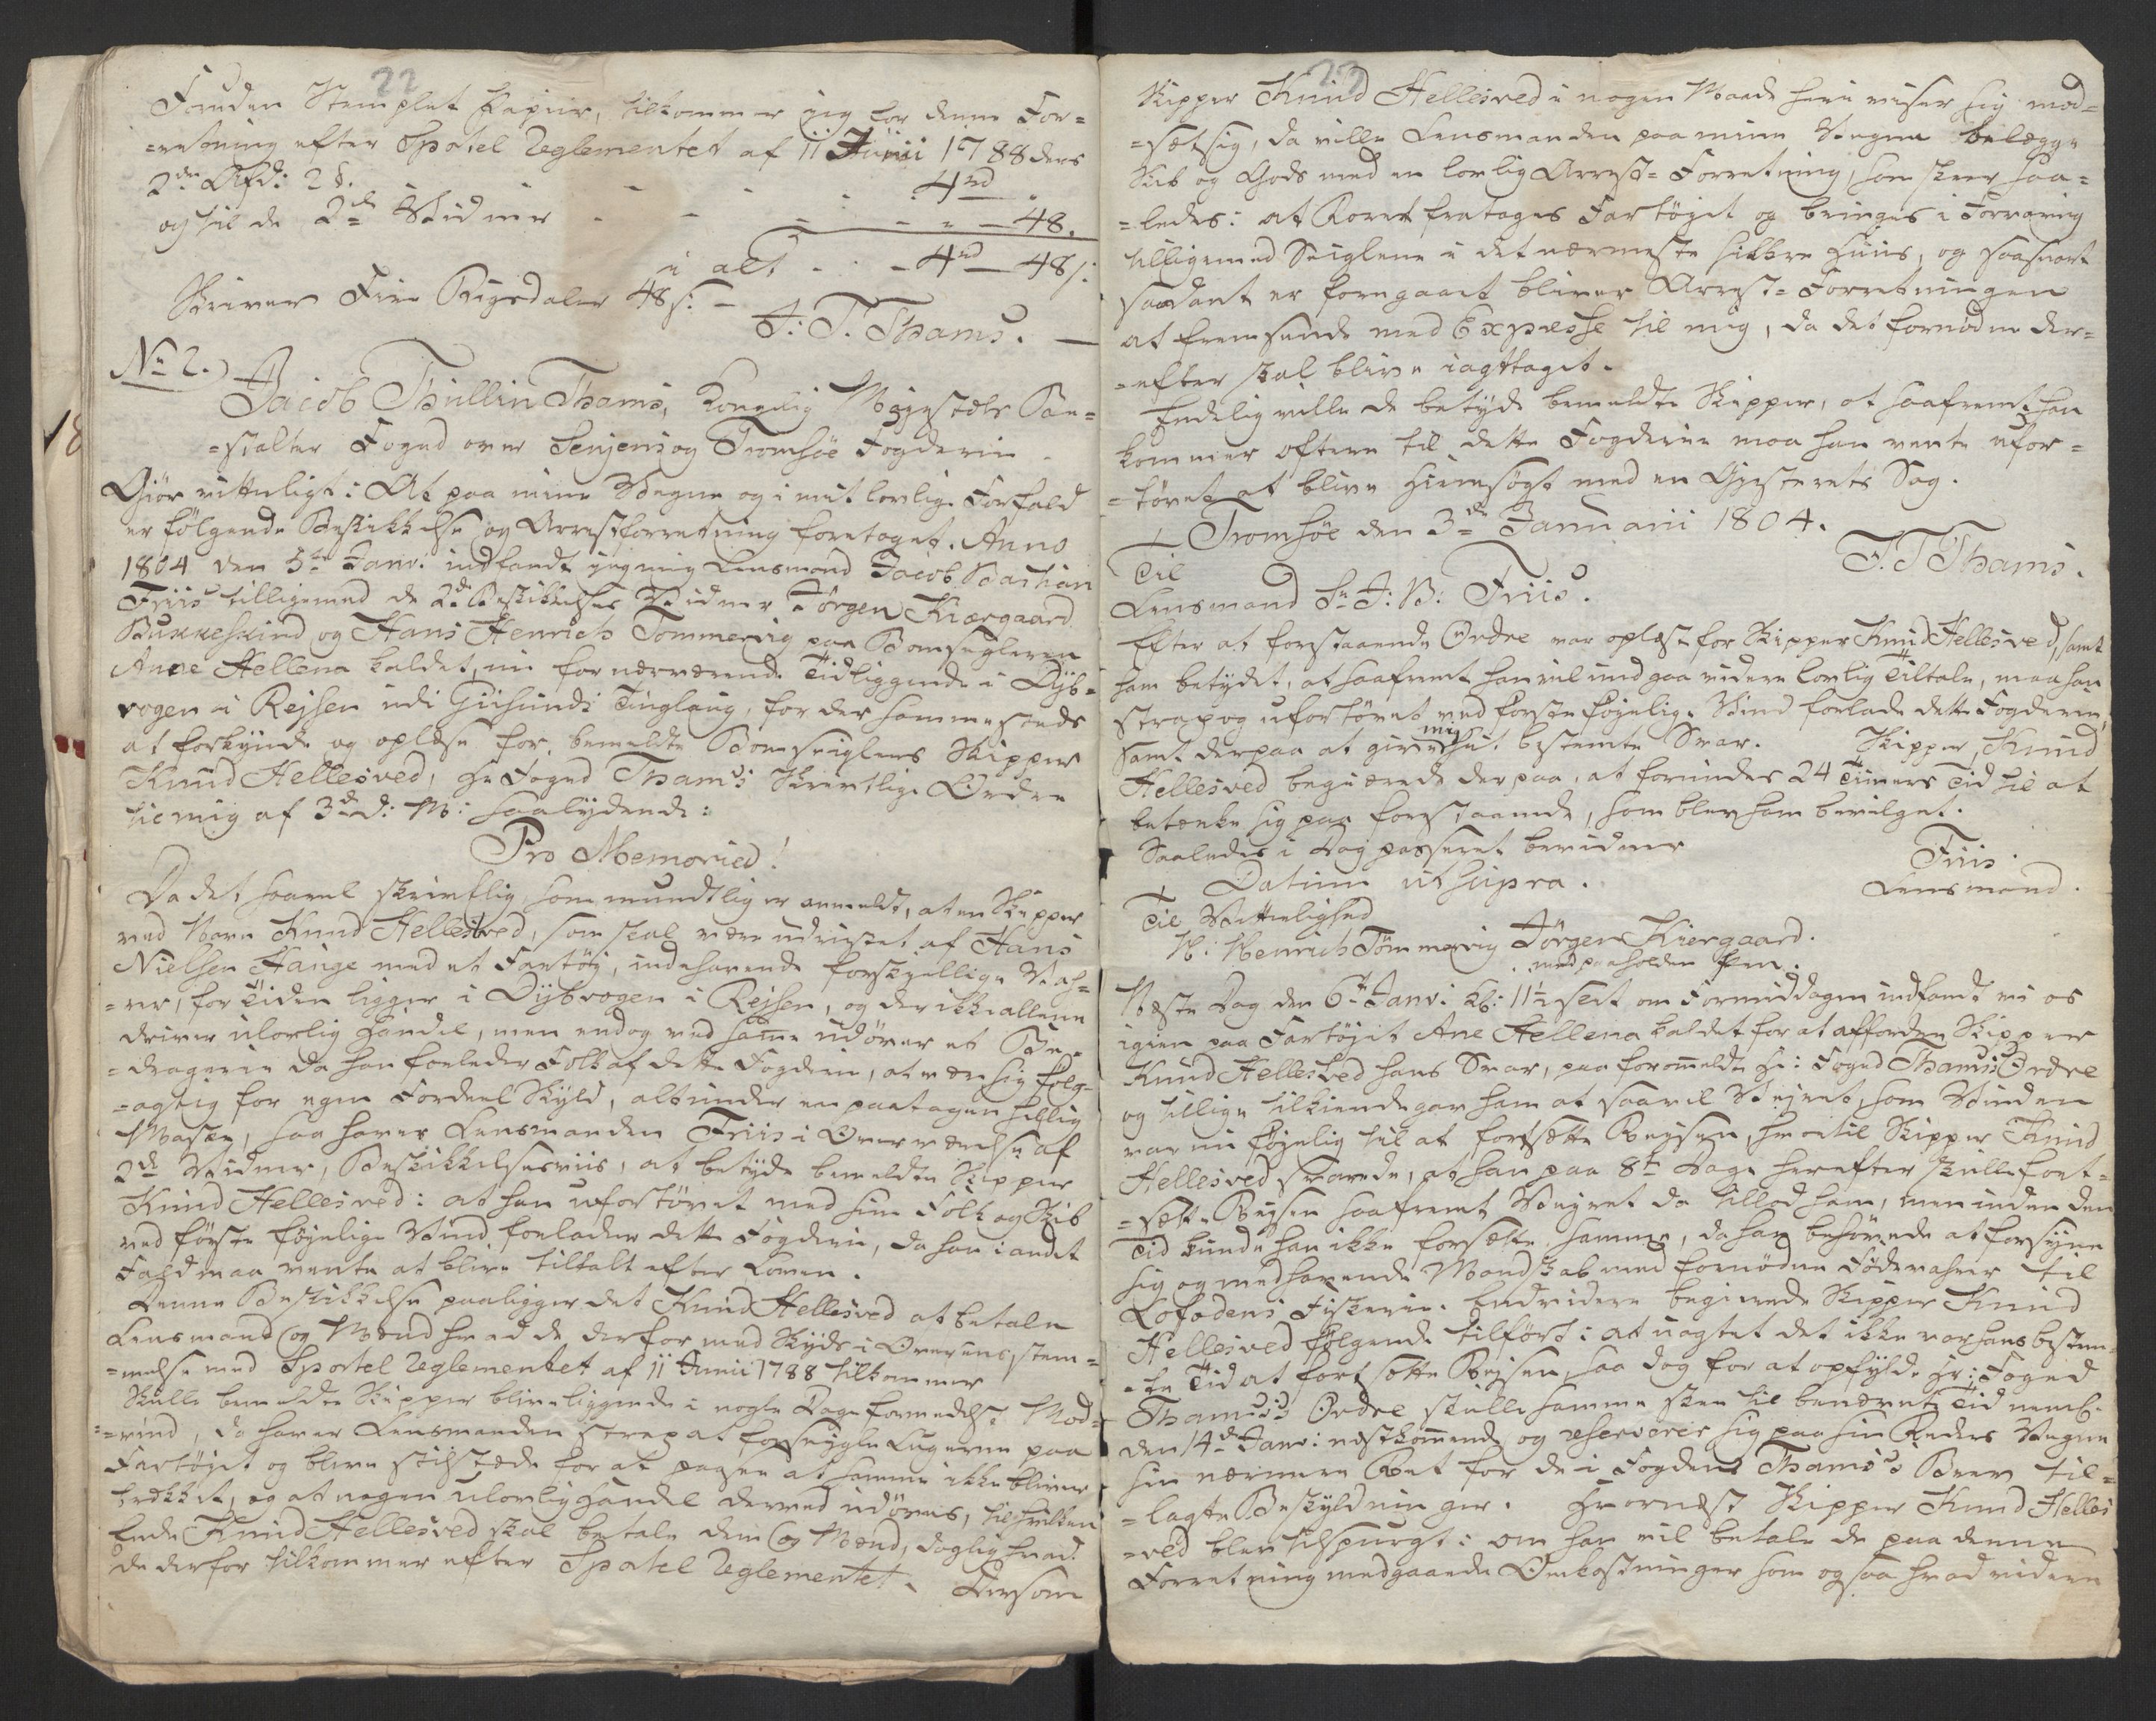 22
Foruden Stemplet Papiir, tilkommer jeg for denne For=
=retning efter Sportel Reglementet af 11 Junii 1788 dens
2den Afd: 2 §. - - - 4rd „
og til de 2de Vidner - - - - - „ - 48.
i alt - - - 4rd - 48 s:
Skriver Fire Rigsdaler 48 s: -
J: T. Thams. -
No 2.
Jacob Thullin Thams, Kongelig Mayestæts Be=
=stalter Foged over Senjens og Tromsøe Fogderie
Giør vitterligt: At paa mine Vegne og i mit lovlige Forfald
er følgende Beskikkelse og Arrestforretning foretaget. Anno
1804 den 5te Janv. indfandt jeg mig Lensmand Jacob Bastian
Friis tilligemed de 2de Beskikkelses Vidner Jørgen Kiærgaard
Bukkeskind og Hans Henrich Tommervig paa Bomseigleren
Anne Hellena kaldet, nu for nærværende Tid liggende i Dyb=
vogen i Rejsen udi Giisunds Tinglaug, for der sammesteds
at forkynde og oplæse for bemeldte Bomseiglers Skipper
Knud Hellesved, Hr Foged Thams's Skrivtlige Ordre
til mig af 3de d: M: saalydende:
Pro Memoria!
Da det saavel skrivtlig som mundtlig er anmeldt, at en Skipper
ved Navn Knud Hellesved, som skal være udrustet af Hans
Nielsen Hauge med et Fartøj, indehavende forskjællige Vah=
=rer, for Tiden ligger i Dybvogen i Rejsen, og der ikke allene
driver ulovlig Handel, men endog ved samme udøver et Be=
=dragerie da han forleder Folk af dette Fogderie, at være sig følg=
=agtig for egen Fordeel Skyld, alt under en paatagen hellig
Maske, saa haver Lensmanden Friis i Overværelse af
2de Vidner, Beskikkelsesviis, at betyde bemeldte Skipper
Knud Hellesved: at han ufortøvet med sine Folk og Skib
ved første føyelige Vind forlader dette Fogderie, da han i andet
Fald maa vente at blive tiltalt efter Loven.
Denne Beskikkelse paaligger det Knud Hellesved at betale
Lensmand og Mænd hvad de derfor med Skyds i Overeensstem=
=melse med Sportel Reglementet af 11 Junii 1788 tilkommer
Skulle bemeldte Skipper blive liggende i nogle Dage formedelst Mod=
=vind, da haver Lensmanden strax at forseygle Lugerne paa
Fartøjet og blive tilstæde for at paasee at samme ikke bliver
brækket, og at nogen ulovlig Handel derved udøves, til hvilken
Ende Knud Hellesved skal betale dem og Mænd, daglig hvad
de derfor tilkommer efter Sportel Reglementet. Dersom
23
Skipper Knud Hellesved i nogen Maade heri viser sig mod=
=sætsig, da ville Lensmanden paa mine Vegne belægge
Skib og Gods med en lovlig Arrest= Forretning, som skeer saa=
=ledes: at Roret fratages Fartøjet og bringes i Forvaring
tilligemed Seiglene i det nærmeste sikkre Huus, og saasnart
saadant er foregaaet bliver Arrest= Forretningen
at fremsende med Expresse til mig, da det fornødne der=
=efter skal blive iagttaget.
Endelig ville de betyde bemeldte Skipper, at saafremt han
kommer oftere til dette Fogderie maa han vente ufor=
=tøvet at blive hiemsøgt med en Gjesterets Sag.
Tromsøe den 3de Januarii 1804.
J. T Thams.
Til
Lensmand Sr J: B: Friis.
Efter at forestaaende Ordre var oplæst for Skipper Knud Hellesved, samt
ham betydet, at saafremt han vil undgaa videre lovlig Tiltale, maa han
strax og ufortøvet ved første føyelige Vind forlade dette Fogderie,
samt derpaa at give mig sit bestemte Svar. Skipper Knud
Hellesved begiærede derpaa, at forundes 24 Timers Tid til at
betænke sig paa forestaaende, som blev ham bevilget.
Saaledes i Dag passeret bevidner
Friis
Datum ut supra. Lensmand.
Til Vitterlighed
H: Henrich Tømmervig Jørgen Kiergaard.
med paaholden Pen.
Næste Dag den 6te Janv: Kl: 11 1/2 slet om Formiddagen indfandt vi os
igien paa Fartøjet Ane Hellena kaldet for at affordre Skipper
Knud Hellesved hans Svar, paa formeldte Hr: Foged Thams's Ordre
og tillige tilkiendegav ham at saavel Vejret, som Vinden
var nu føyelig til at fortsætte Rejsen, hvortil Skipper Knud
Hellesved svarede, at han paa 8te Dage herefter skulle fort=
=sætte Rejsen saafremt Veyret da tillod ham, men inden den
Tid kunde han ikke forsætte samme, da han behøvede at forsyne
sig og medhavende Mandskab med fornødne Fødevahrer til
Lofodens Fiskerie. Endvidere begierede Skipper Knud
Hellesved følgende tilført: at uagtet det ikke var hans bestem=
=te Tid at fortsætte Rejsen, saa dog for at opfylde Hr: Foged
Thams's Ordre skulle samme skee til benævnte Tid neml.
den 14de Janv: næstkommende og reserverer sig paa sin Reders Vegne
sin nærmere Ret for de i Fogden Thams's Brev til=
=lagte Beskyldninger. Hvornæst Skipper Knud Helles
=ved blev tilspurgt: om han vil betale de paa denne
Forretning medgaaende Omkostninger som og saa hvad videre